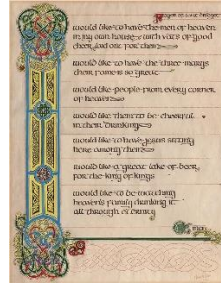 would like to have the men of heaven
in my own house
with vats of good
cheer laid out for them
would like to have the three marys
their fame is so great
would like people from every corner
of heaven
would like them to be cheerful
in their drinking
would like to have jesus sitting
here among them
would like a great lake of beer
for the king of kings
would like to be watching
heaven's family drinking it
all through eternity